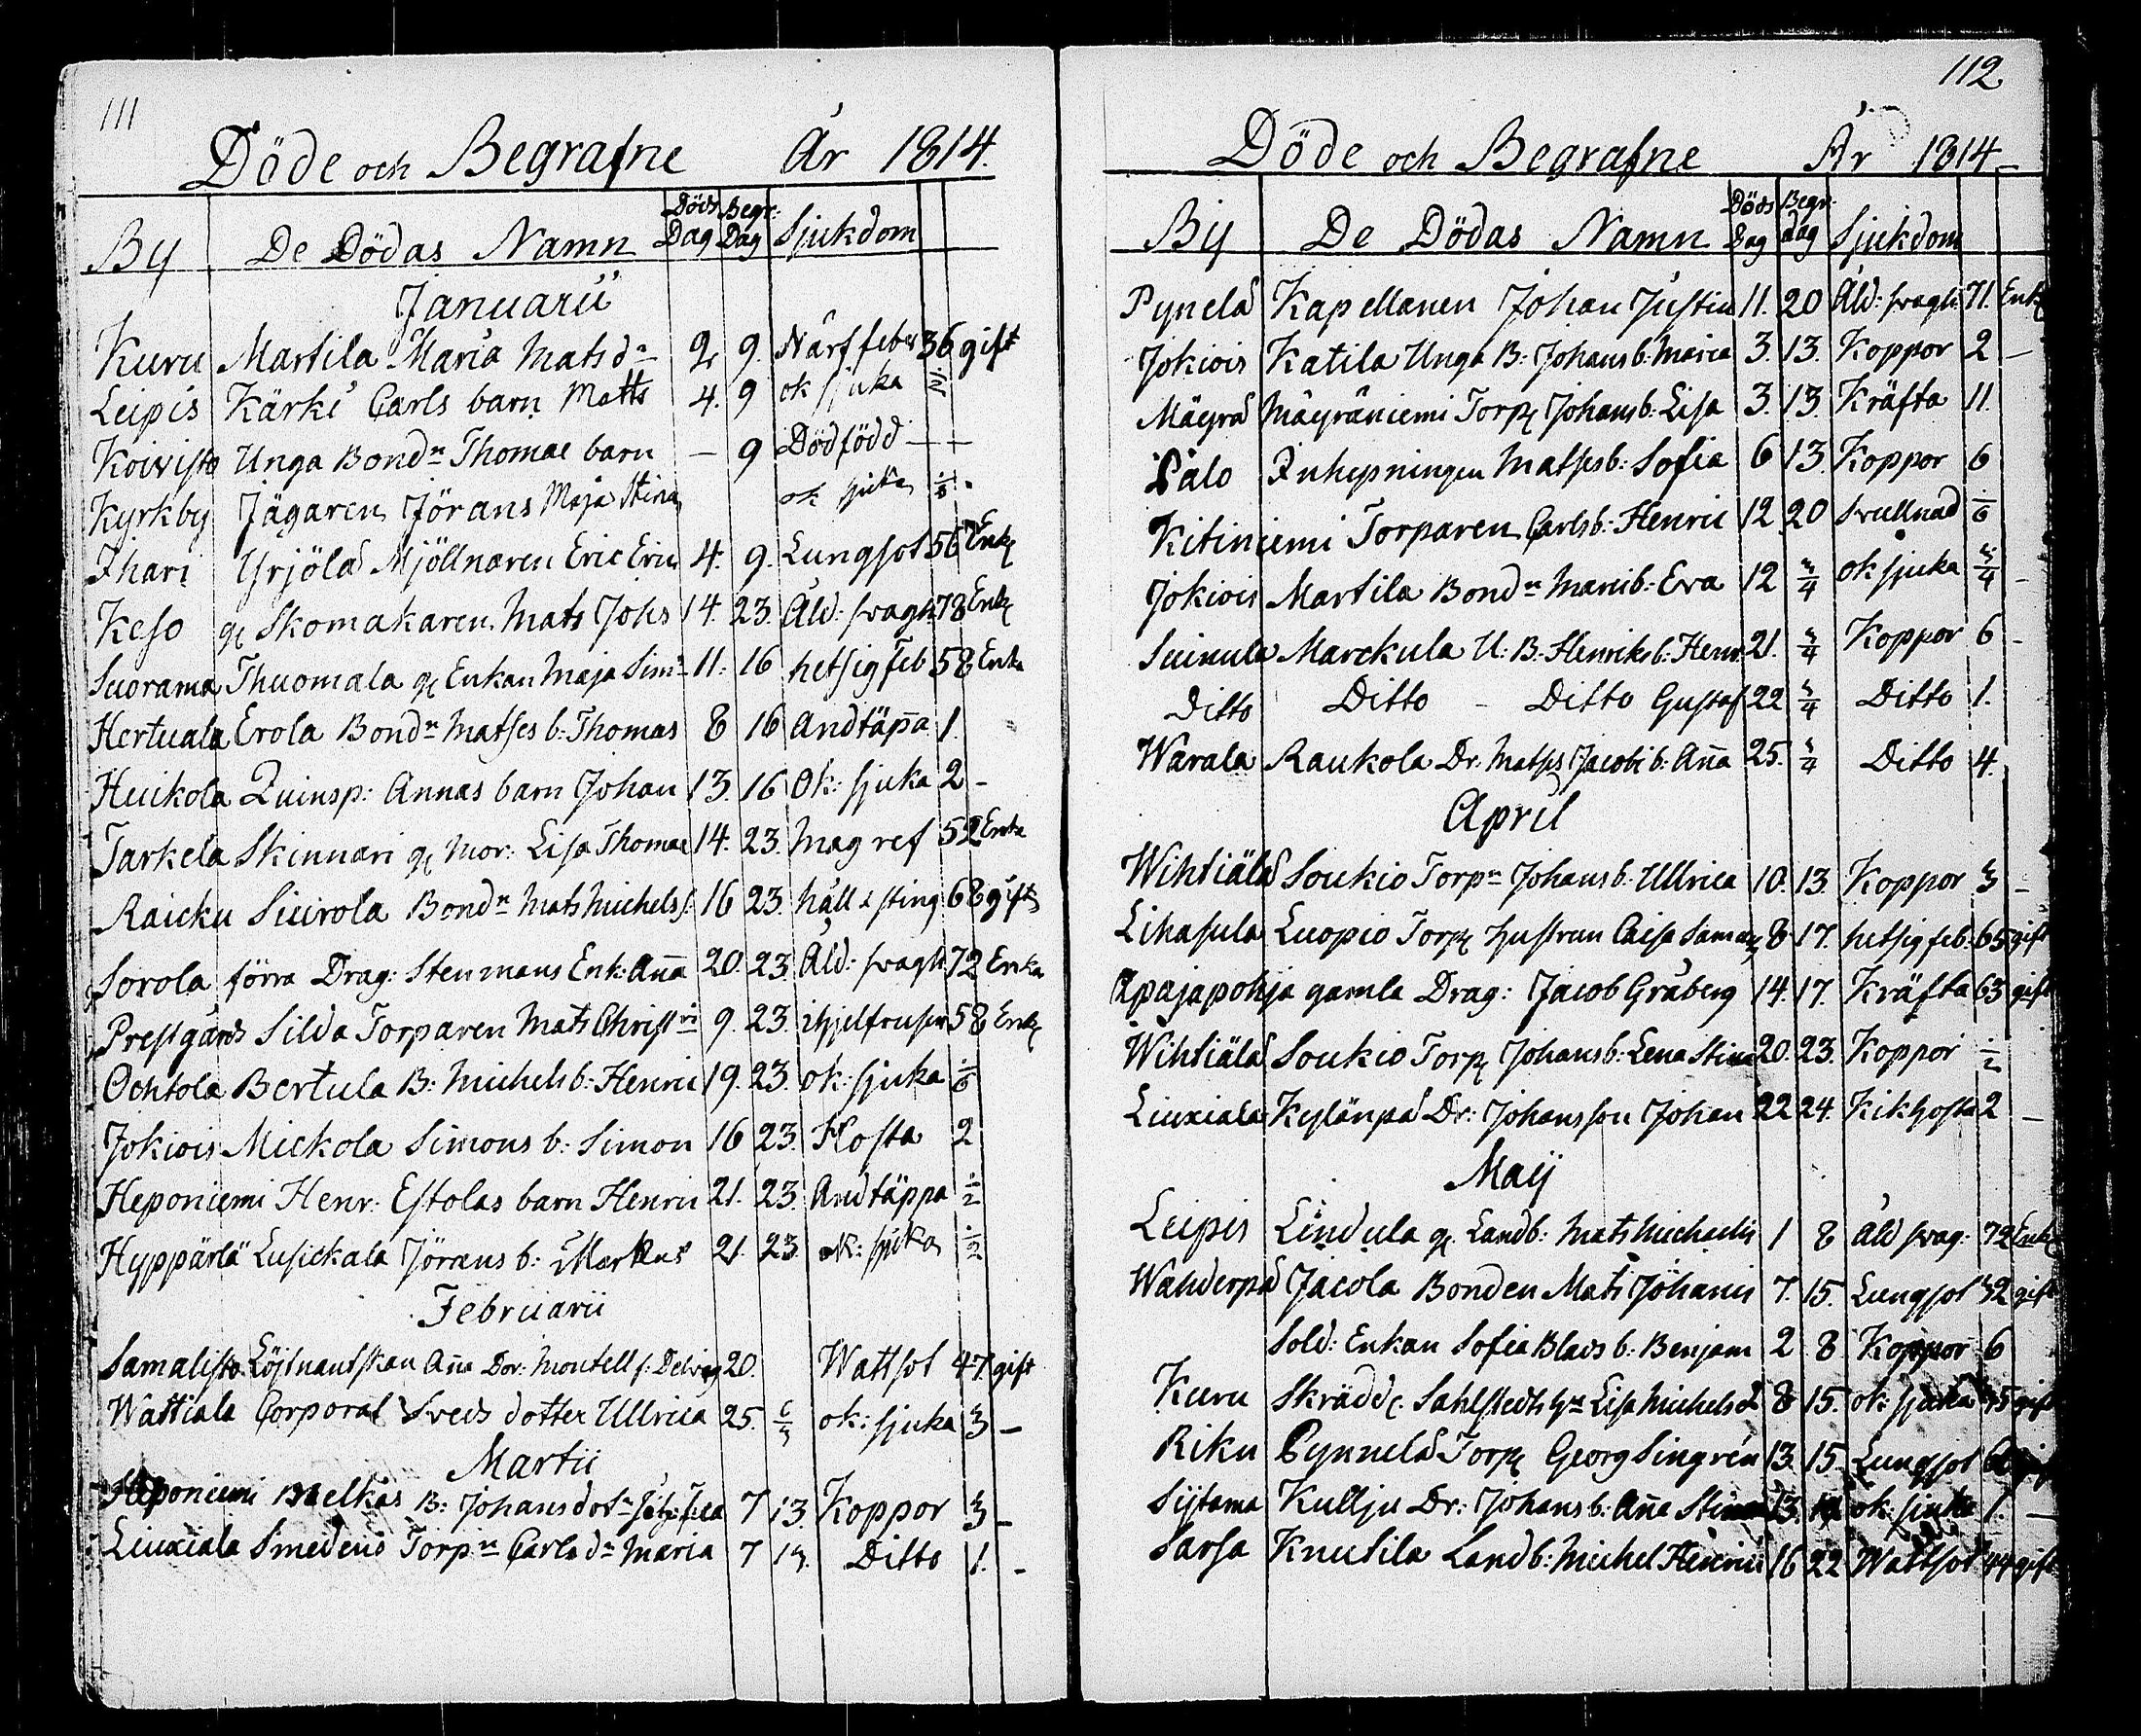 111
Döde och Begrafne År 1814.
By De Dödas Namn Döds Dag Begr: Dag Sjukdom
Januarii
Kuru Martila Maria Mats dr 2 9. Närffeber 36 gift
Leipis Kärki Carls barn Matts 4. 9 ok sjuka 1/2
Koivisto Unga Bondn Thomae barn — 9 Dödfödd — —
Kyrkby Jägaren Jörans Maja Stina ok sjuka
Ihari Yrjölä Mjöllnaren Eric Eric 4. 9. Lungsot 56 Enkl
Keso gl Skomakaren Mats Johs 14. 23. Åld: svagh 78 Enkl
Suorama Thuomala gl Enkan Maja Sim 11. 16 hetsig Feb 58 Enka
Hertuala Erola Bondn Matses b: Thomas 8 16 Andtäp̄a 1.
Huikola Quinsp: Annas barn Johan 13. 16 Ok: sjuka 2 -
Tarkela Skinnari gl Mor: Lisa Thomae 14. 23. Mag ref 52 Enka
Raicku Siurola Bondn Mats Michels s: 16 23. håll & sting 68 gift
Sorola förra Drag: Stenmans Enk: An̄a 20. 23 Åld: svagh 72 Enka
Prestgårds Silda Torparen Mats Christ 9. 23. ihjelfrusen 58 Enkl
Ochtola Bertula B: Michels b: Henric 19. 23. ok: sjuka
Jokiois Mickola Simons b: Simon 16 23. Hosta 2
Heponiemi Henr: Estolas barn Henric 21. 23. Andtäppa 1/2
Hyppärlä Lusickala Jörans b: Markus 21. 23 ok: sjuka 1/2
Februarii
Samalisto Löjtnantskan An̄a Dor: Montell f: Delwig 20. Wattsot 47. gift
Wättiala Corporal Sveds dotter Ullrica 25. 6/3 ok: sjuka 3 —
Martii
Heponiemi Maelkas B: Johans dotr 7 13. Koppor 3 —
Liuxiala Smedens Torpn Carls dr Maria 7 13. Ditto 1. -
112
Döde och Begrafne År 1814 —
By De Dödas Namn Döds Dag Begr. dag Sjukdom
Pynelä Kapellanen Johan Justin 11. 20 Åld: svagh 71. Enkl
Jokiois Katila Unga B: Johans b: Maria 3. 13. Koppor 2 —
Mäyrä Mäyräniemi Torpl Johans b: Lisa 3. 13. Kräfta 11.
Palo Inhepningen Matses b: Sofia 6 13. Koppor 6
Kitiniemi Torparen Carls b: Henric 12 20 Svullnad
Jokiois Martila Bondn b: Eva 12 3/4 ok sjuka 3/4 -
Suinula Marckula U: B: Henriks b: Henr 21. 3/4 Koppor 6 -
Ditto Ditto - Ditto Gustaf 22 3/4 Ditto 1.
Warala Raukola Dr: Matses Jacobs b: An̄a 25. 3/4 Ditto 4.
April
Wihtiälä Soukio Torpn Johans b: Ullrica 10. 13. Koppor 3 -
Lihasula Luopio Torpl hustrun Caisa 8 17. hetsig feb: 65 gift
Apajapohja gamla Drag: Jacob Gråberg 14. 17. Kräfta 63 gift
Wihtiälä Soukio Torpl Johans b: Lena Stina 20. 23. Koppor 1/2
Liuxiala Kylänpä Dr: Johansson Johan 22 24. Kikhosta 2 —
Maij
Leipis Lindula gl. Landb: Mats Michaelis 1 8 Åld svag: 72 Enkl
Wahderpä Jacola Bonden Mats Johanis 7. 15. Lungsot 32 gift
Sold: Enkan Sofia Blads b: Benjam 2 8 Koppor 6
Kuru Skrädd: Sahlstedts Lisa Michelsd 8 15. ok: sjuka 45 gift
Riku Pynnelä Torpl Georg Singrén 13. 15. Lungsot gift
Sijtama Kullju Dr: Johans b: An̄a Stina 13. ok: sjuka 1. —
Sarsa Knutila Landb: Michel Henrici 16 22 Wattsot 44 gift